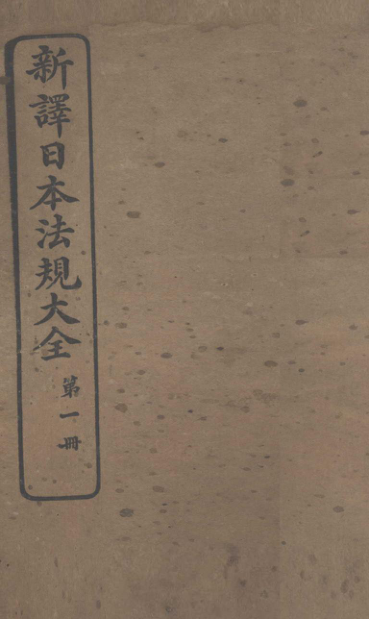 新譯日本法規大全
第一冊